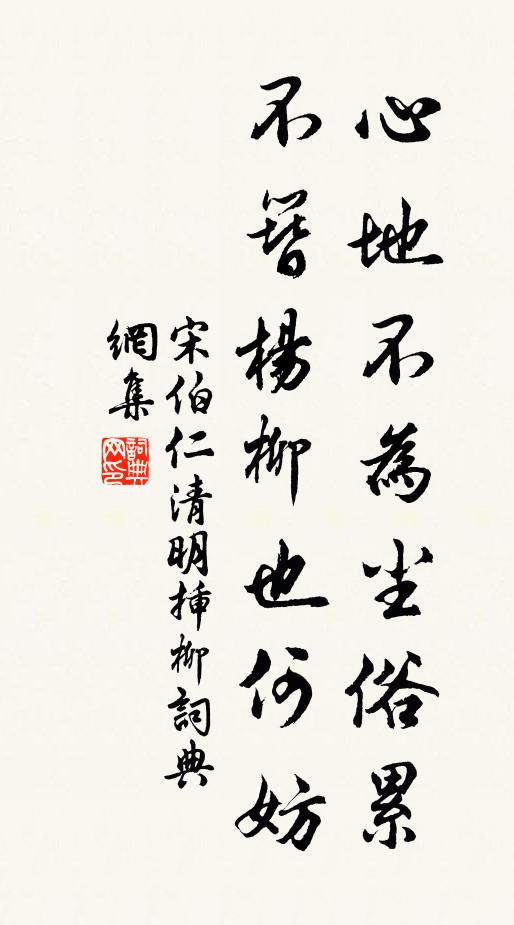 心地不為尘俗累
不簪楊柳也何妨
宋伯仁清明挿柳詞典
網集
詞典
网印